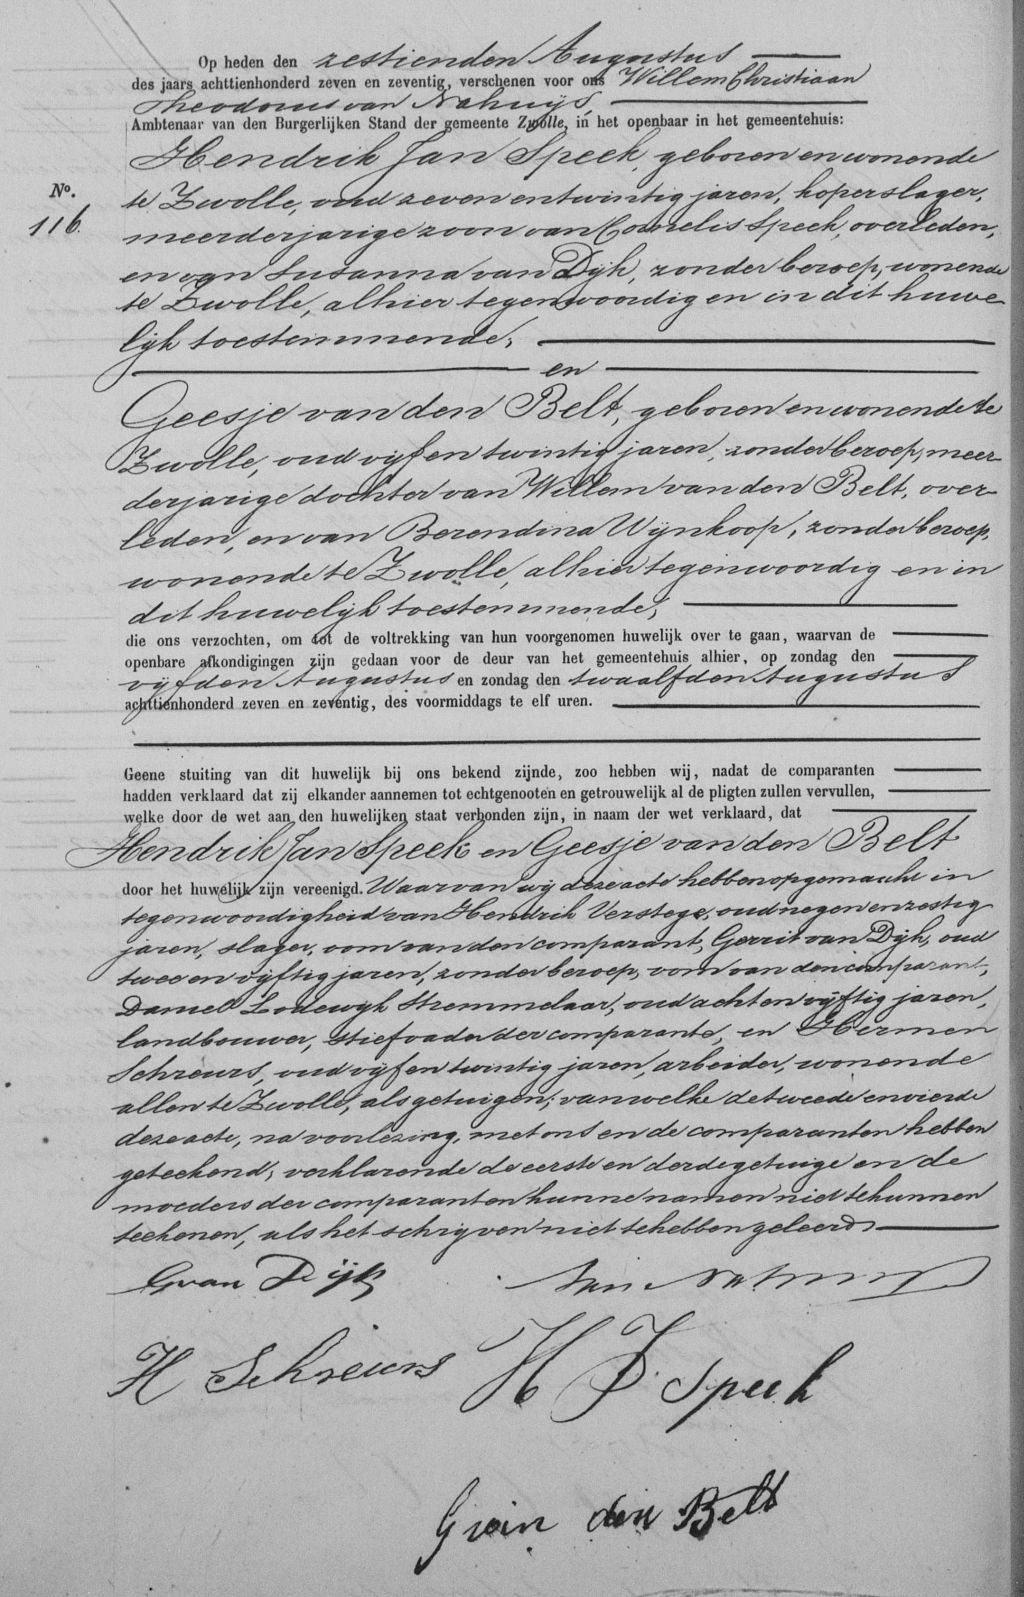 Op heden den zestienden Augustus
des jaars achttienhonderd zeven en zeventig, verschenen voor ons Willem Christiaan
Theodorus van Nahuijs
Ambtenaar van den Burgerlijken Stand der gemeente Zwolle, in het openbaar in het gemeentehuis:
No.
116.
Hendrik Jan Speek, geboren en wonende
te Zwolle, oud zeven en twintig jaren, koperslager,
meerderjarige zoon van Cornelis Speek, overleden,
en van Susanna van Dijk, zonder beroep, wonende
te Zwolle, alhier tegenwoordig en in dit huwe-
lijk toestemmende,
en
Geesje van den Belt, geboren en wonende te
Zwolle, oud vijf en twintig jaren, zonder beroep, meer
derjarige dochter van Willem van den Belt, over-
leden, en van Berendina Wijnkoop, zonder beroep,
wonende te Zwolle, alhier tegenwoordig en in
dit huwelijk toestemmende,
die ons verzochten, om tot de voltrekking van hun voorgenomen huwelijk over te gaan, waarvan de
openbare afkondigingen zijn gedaan voor de deur van het gemeentehuis alhier, op zondag den
vijfden Augustus en zondag den twaalfden Augustus
achttienhonderd zeven en zeventig, des voormiddags te elf uren.
Geene stuiting van dit huwelijk bij ons bekend zijnde, zoo hebben wij, nadat de comparanten
hadden verklaard dat zij elkander aannemen tot echtgenooten en getrouwelijk al de pligten zullen vervullen,
welke door de wet aan den huwelijken staat verbonden zijn, in naam der wet verklaard, dat
Hendrik Jan Speek en Geesje van den Belt
door het huwelijk zijn vereenigd. Waarvan wij deze acte hebben opgemaakt in
tegenwoordigheid van Hendrik Verstege, oud negen en zestig
jaren, slager, oom van den comparant, Gerrit van Dijk, oud
twee en vijftig jaren, zonder beroep, oom van den comparant,
Daniel Lodewijk Stremmelaar, oud acht en vijftig jaren,
landbouwer, stiefvader der comparante, en Hermen
Schreurs, oud vijf en twintig jaren, arbeider, wonende
allen te Zwolle, als getuigen; van welke de tweede en vierde
deze acte, na voorlezing, met ons en de comparanten hebben
geteekend, verklarende de eerste en derde getuige en de
moeders der comparanten hunne namen niet te kunnen
teekenen, als het schrijven niet te hebben geleerd.
G van Dijk
van Nahuijs
H Schreurs
H J Speek
G van den Belt